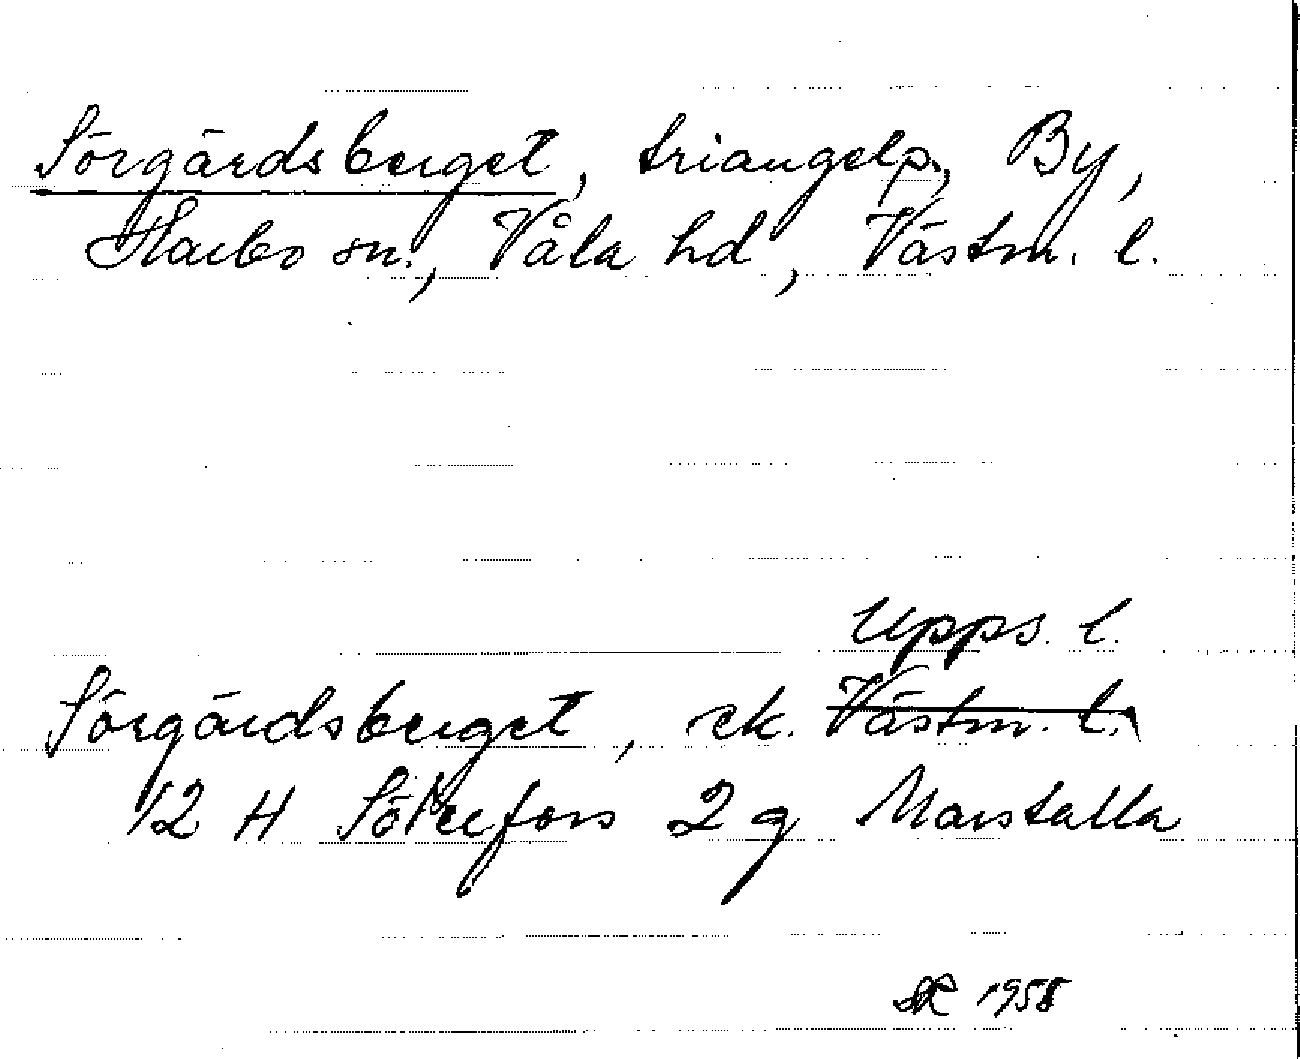 Sörgärdsberget, triangelp., By,
Harbo sn., Våla hd, Västm. l.
Upps. l.
Sörgärdsberget, ek. Västm. l.
12 H Söderfors 2 g Marstalla
SR 1958